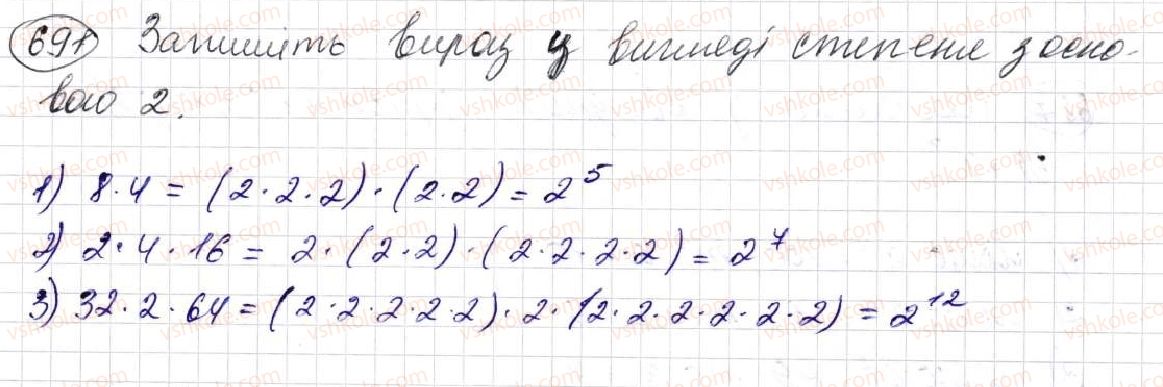 691 Запишіть вираз у вигляді степеня з осно-
вою 2.
1) 8·4 = (2·2·2)·(2·2) = 2^5
2) 2·4·16 = 2·(2·2)·(2·2·2·2) = 2^7
3) 32·2·64 = (2·2·2·2·2)·2·(2·2·2·2·2·2) = 2^12
vshkole.com